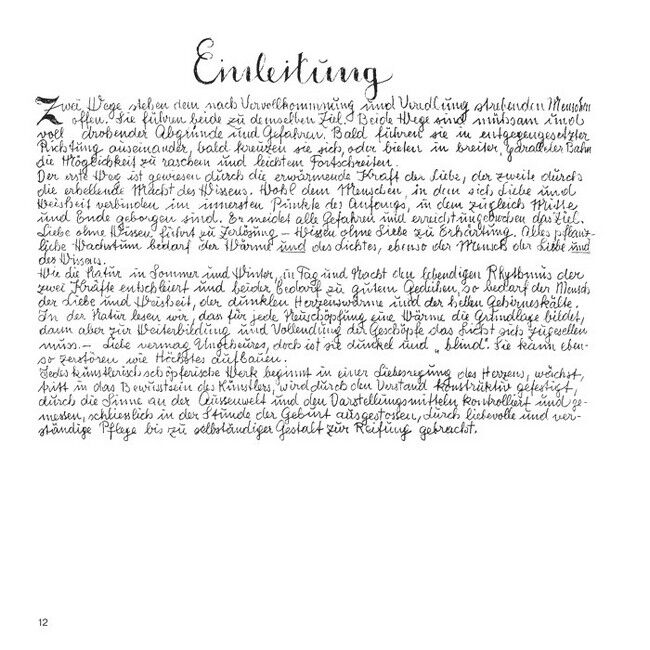 Einleitung
Zwei Wege stehen dem nach Vervollkommnung und Veredlung strebenden Menschen
offen. Sie führen beide zu demselben Ziel. Beide Wege sind mühsam und
voll drohender Abgründe und Gefahren. Bald führen sie in entgegengesetzter
Richtung auseinander, bald kreuzen sie sich, oder bieten in breiter, gradester Bahn
die Möglichkeit zu raschem und leichtem Fortschreiten.
Der erste Weg ist gewiesen durch die erwärmende Kraft der Liebe, der zweite durch
die erhellende Macht des Wissens. Wohl dem Menschen, in dem sich Liebe und
Weisheit verbinden im innersten Punkte des Anfangs, in dem zugleich Mitte
und Ende geborgen sind. Er meidet alle Gefahren und erreicht ungebrochen das Ziel.
Liebe ohne Wissen führt zu Zerlösung – Wissen ohne Liebe zu Erhärtung. Alles pflanz-
liche Wachstum bedarf der Wärme und des Lichtes, ebenso der Mensch der Liebe und
des Wissens.
Wie die Natur in Sommer und Winter, in Tag und Nacht den lebendigen Rhythmus der
zwei Kräfte entschleiert und beider Bedarf zu gutem Gedeihen, so bedarf der Mensch
der Liebe und Weisheit, der dunklen Herzenswärme und der hellen Gehirneskälte.
In der Natur lesen wir, dass für jede Neuschöpfung eine Wärme die Grundlage bildet,
dann aber zur Weiterbildung und Vollendung der Geschöpfe das Licht sich zugesellen
muss. – Liebe vermag Ungeheures, doch ist sie dunkel und „blind". Sie kann eben-
so zerstören wie Höchstes aufbauen.
Jedes künstlerisch schöpferische Werk beginnt in einer Liebesregung des Herzens, wächst,
tritt in das Bewusstsein des Künstlers, wird durch den Verstand konstruktiv gefestigt,
durch die Sinne an der Aussenwelt und den Darstellungsmitteln kontrolliert und ge-
messen, schliesslich in der Stunde der Geburt ausgestossen, durch liebevolle und ver-
ständige Pflege bis zu selbständiger Gestalt zur Reifung gebracht.
12